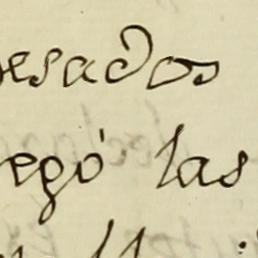 esados
egó las